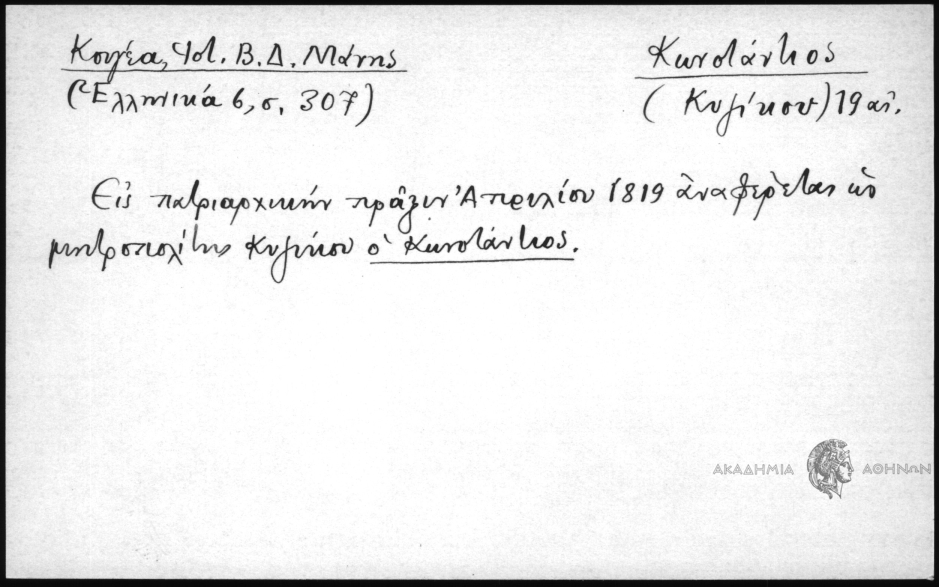 Κουγέα, Ἱστ. Β. Δ. Μάνης
(Ἑλληνικά 6, σ. 307)
Κωνστάντιος
(Κυζίκου) 19 αἰ.
Εἰς πατριαρχικήν πρᾶξιν Ἀπριλίου 1819 ἀναφέρεται ὡς
μητροπολίτης Κυζίκου ὁ Κωνστάντιος.
ΑΚΑΔΗΜΙΑ ΑΘΗΝΩΝ